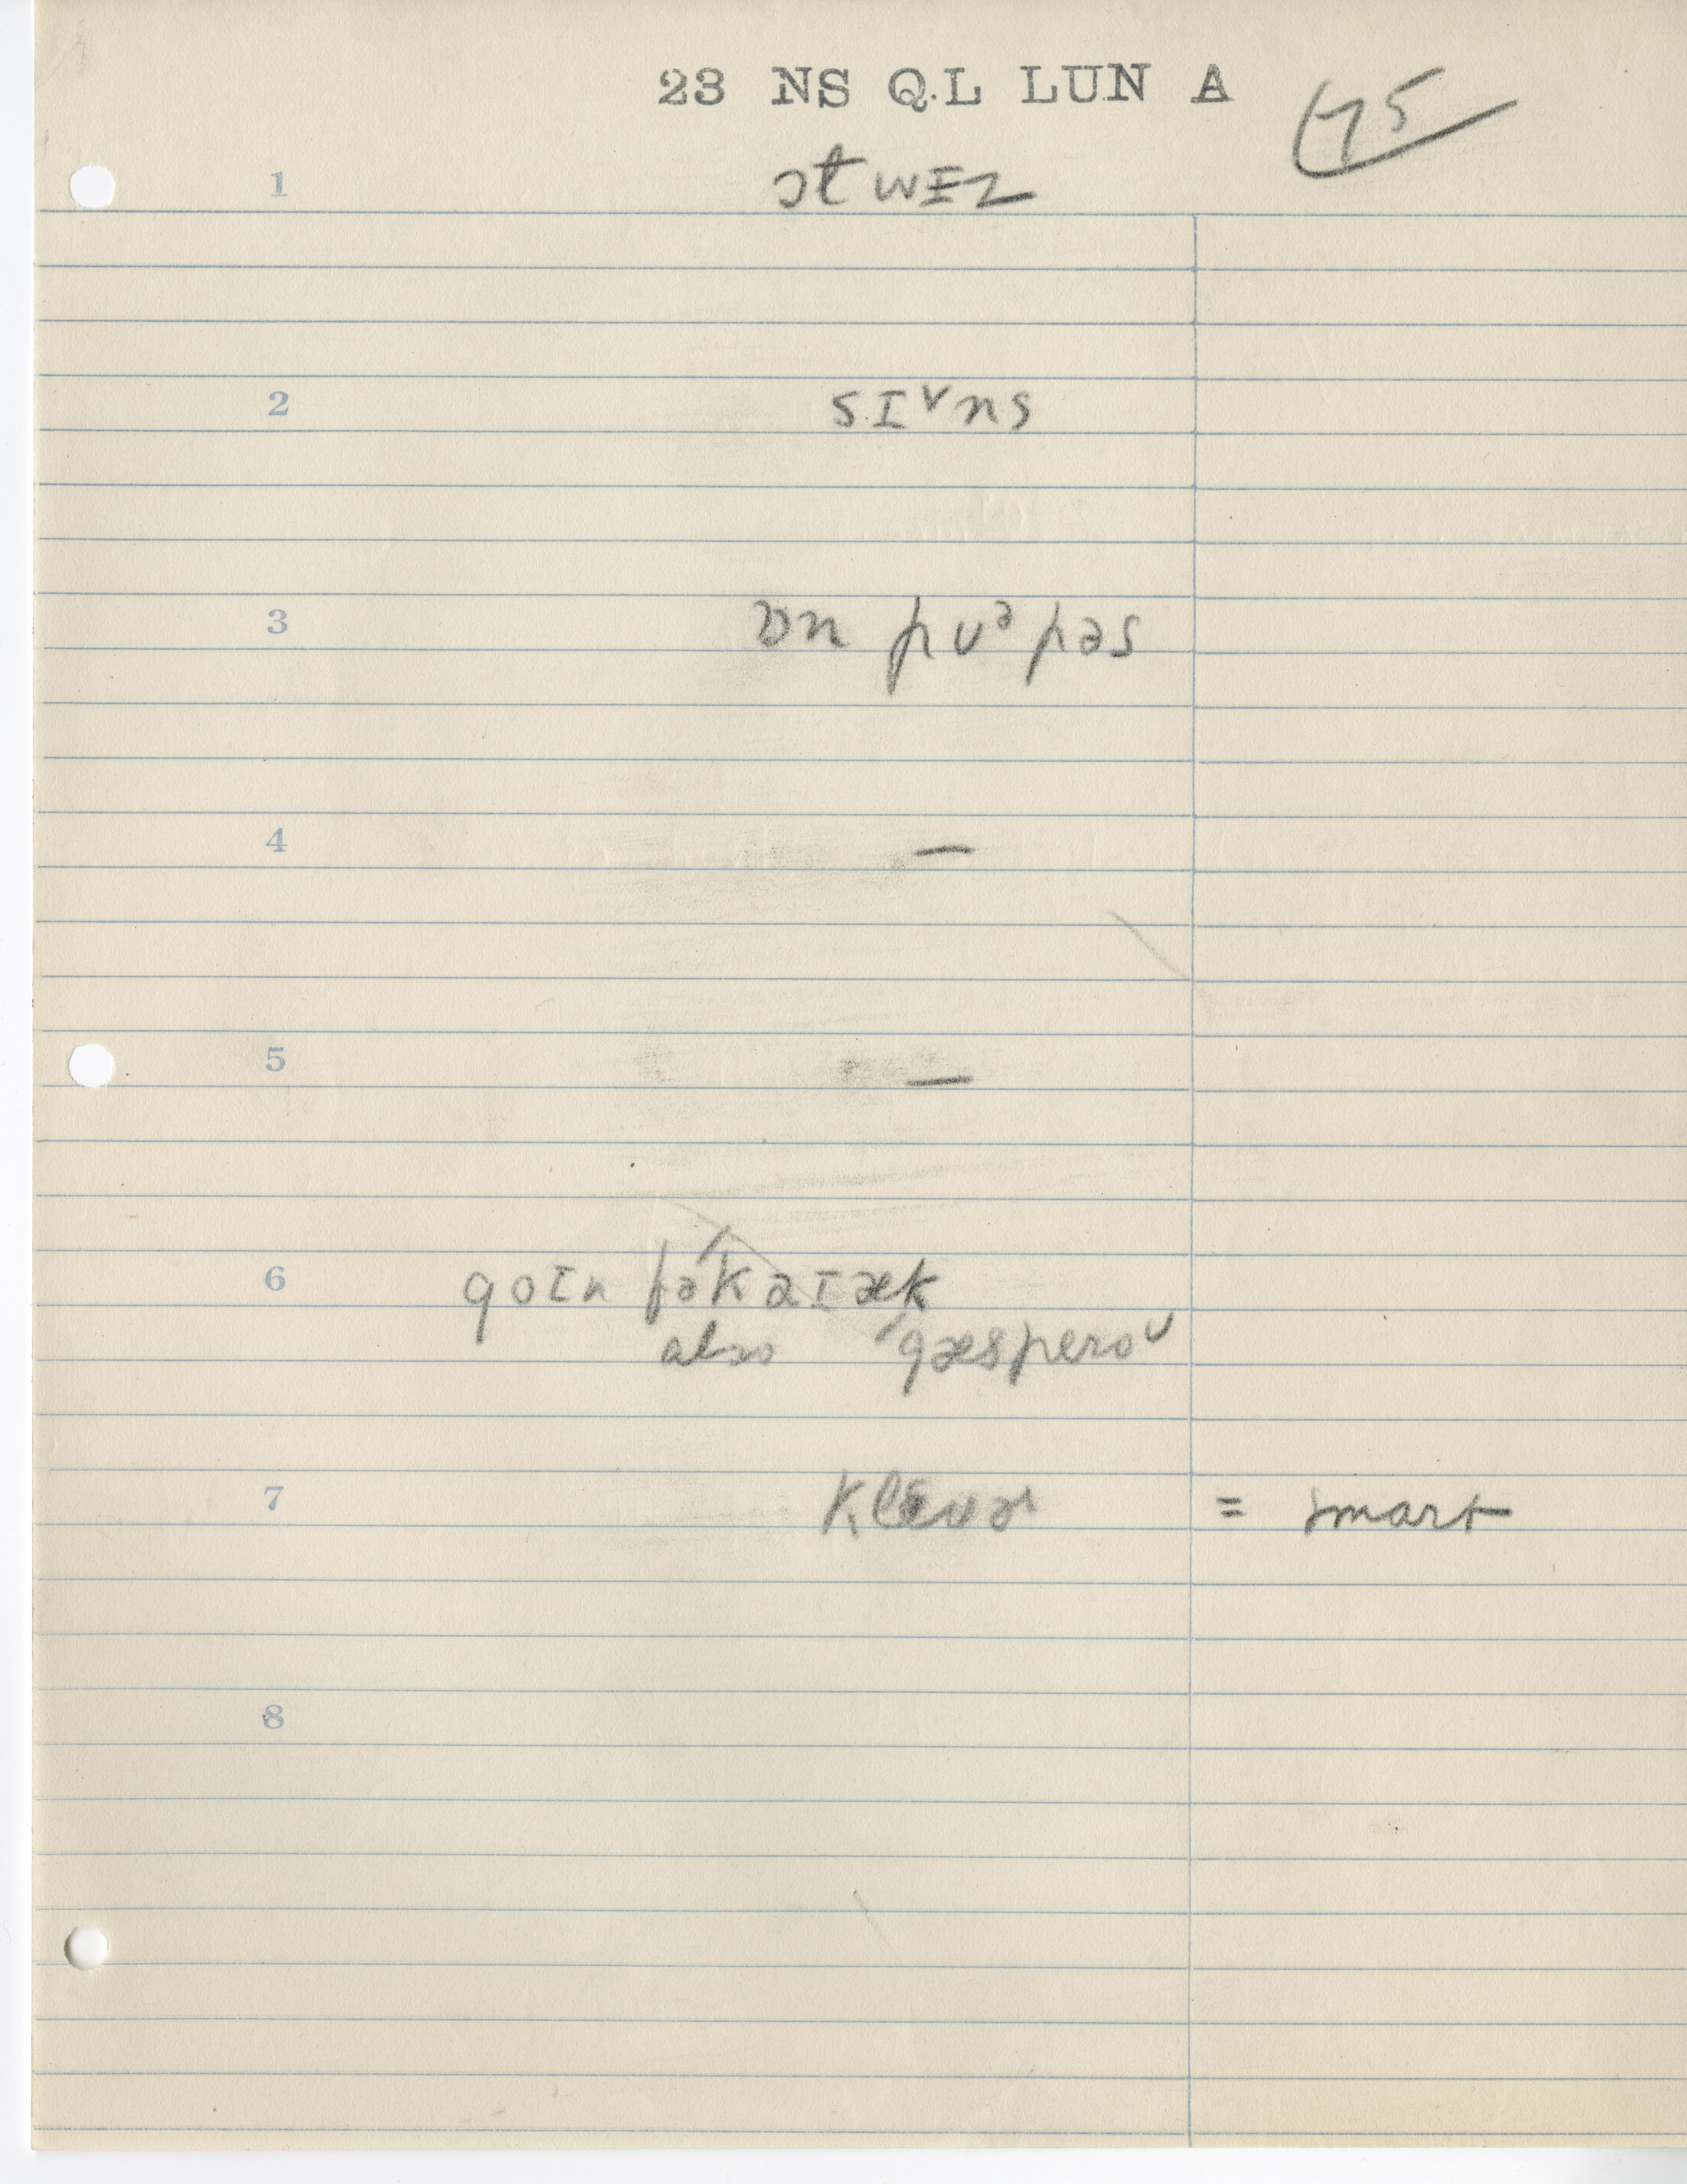 23 NS Q.L LUN A
75
1 ɔtwɪz
2 sɪ˅ns
3 ɒn pʊᵊpəs
4 —
5 —
6 goɪn fə'kaɪæk
also 'gæspeɾoᵘ
7 klɛvɚ = smart
8